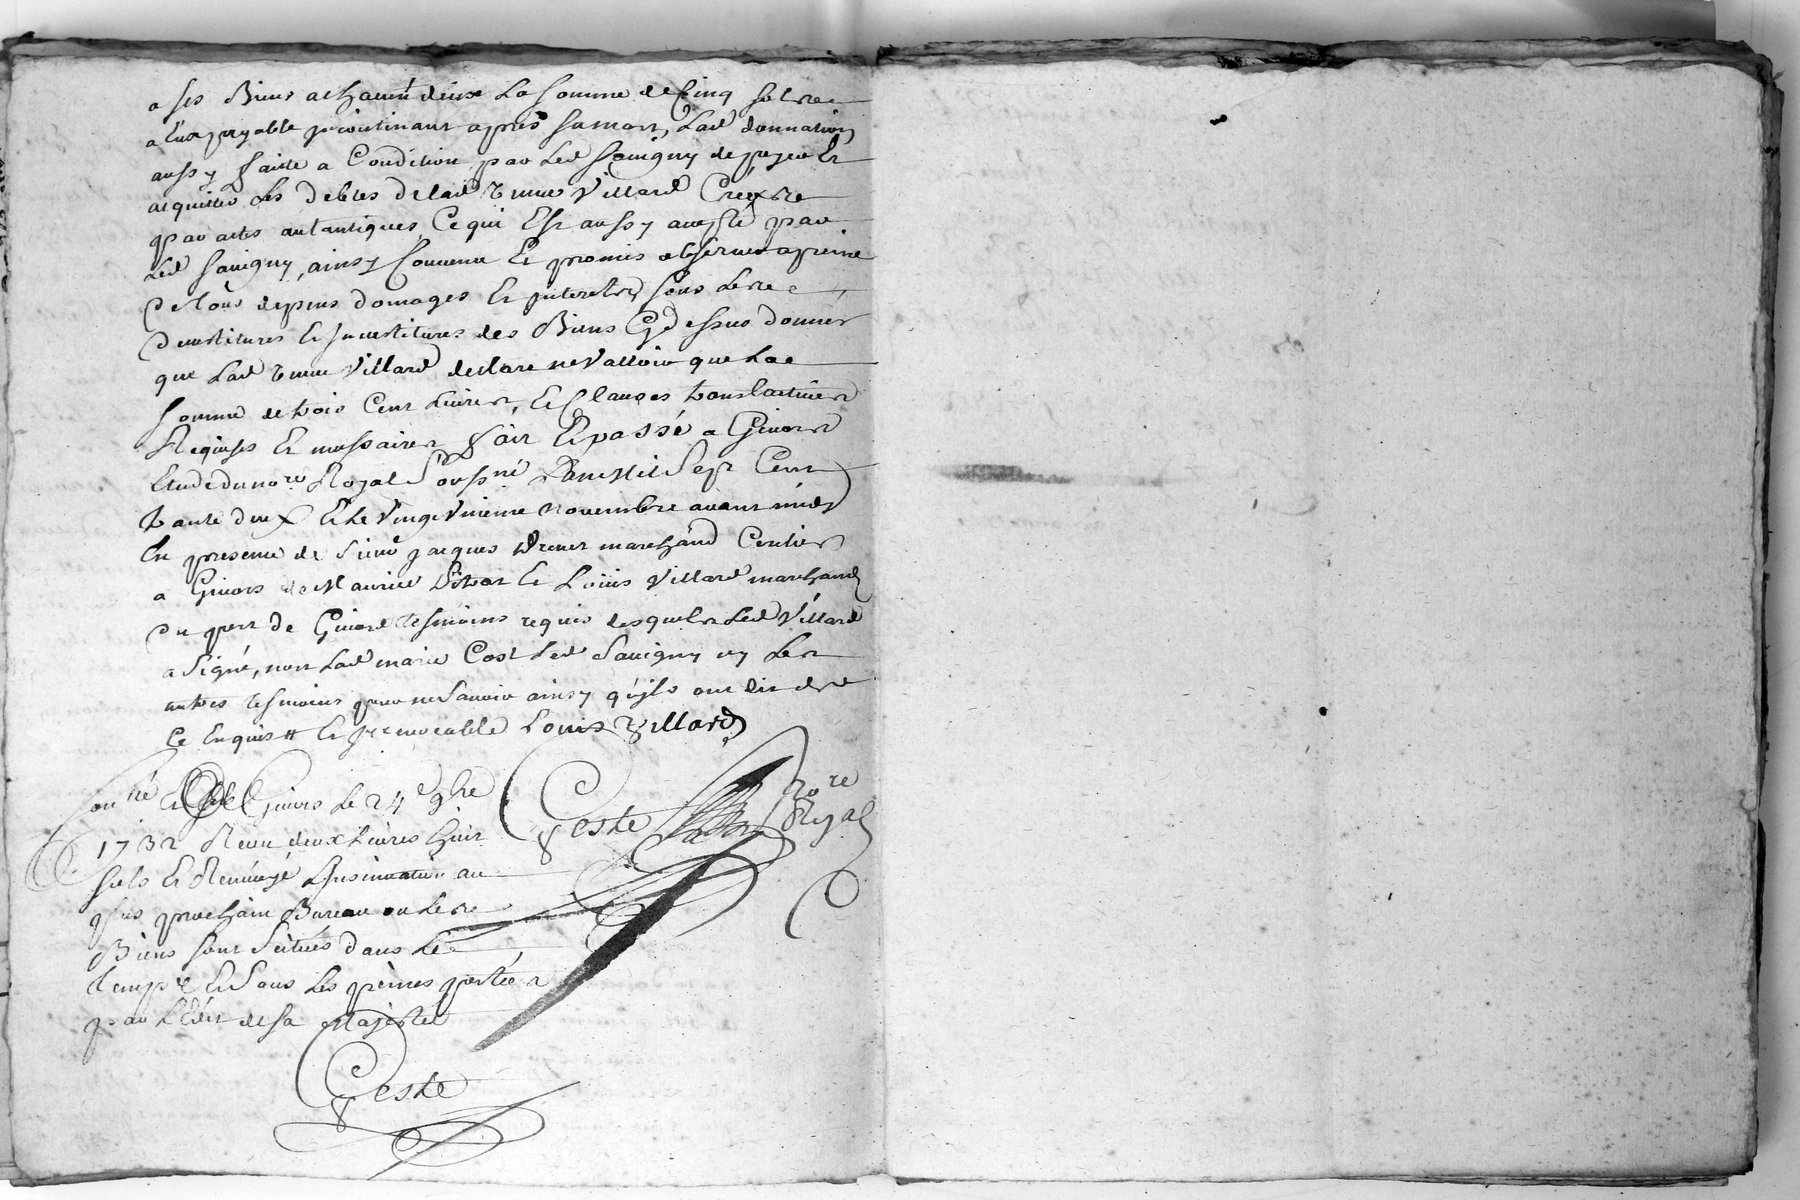 a ses Biens a chacun deux La somme de Cinq sols
a Eux payable jncontinant apres sa mort, Lad donnation
aussy faitte a Condition par Led Savigny de payer Et
acquitter Les debtes de lad veuve Villard Creées
par actes autantiques, Ce qui Est aussy accepté par
Led Savigny, ainsy Convenu Et promis observer a peine
de tous depens domages Et jnterets sous Les
devestitures Et jnvestitures des Biens Cy dessus donnés
que Lad veuve Villard declare ne Valloir que La
somme de trois Cent Livres, Et Clauses translatives
Requises Et necessaires fait Et passé a Givors
Etude du nore Royal Soussné Lan Mil Sept Cent
trante deux Et Le Vingt Vnieme novembre avant midy
En presence de Sieur jacques marchand
a Givors de Maurice Et Louis Villard marchand
du port de Givors tesmoins requis desquels Led Villard
a Signé, non Lad marie Cost Led Savigny ny Les
autres tesmoins pour ne Savoir ainsy qu'jls ont dit de
Ce Enquis # Et jrrevocable Louis Villard
Conllé Et Givors Le 24e 9bre
1732 Receu deux Livres huit
sols Et Renvoyé Linsinuation au
plus prochain Bureau ou Les
Biens sont Scitués dans Le
temps Et Sous Les peines portées
par LEdit de sa Majesté
Geste
Geste
Nore
Royal